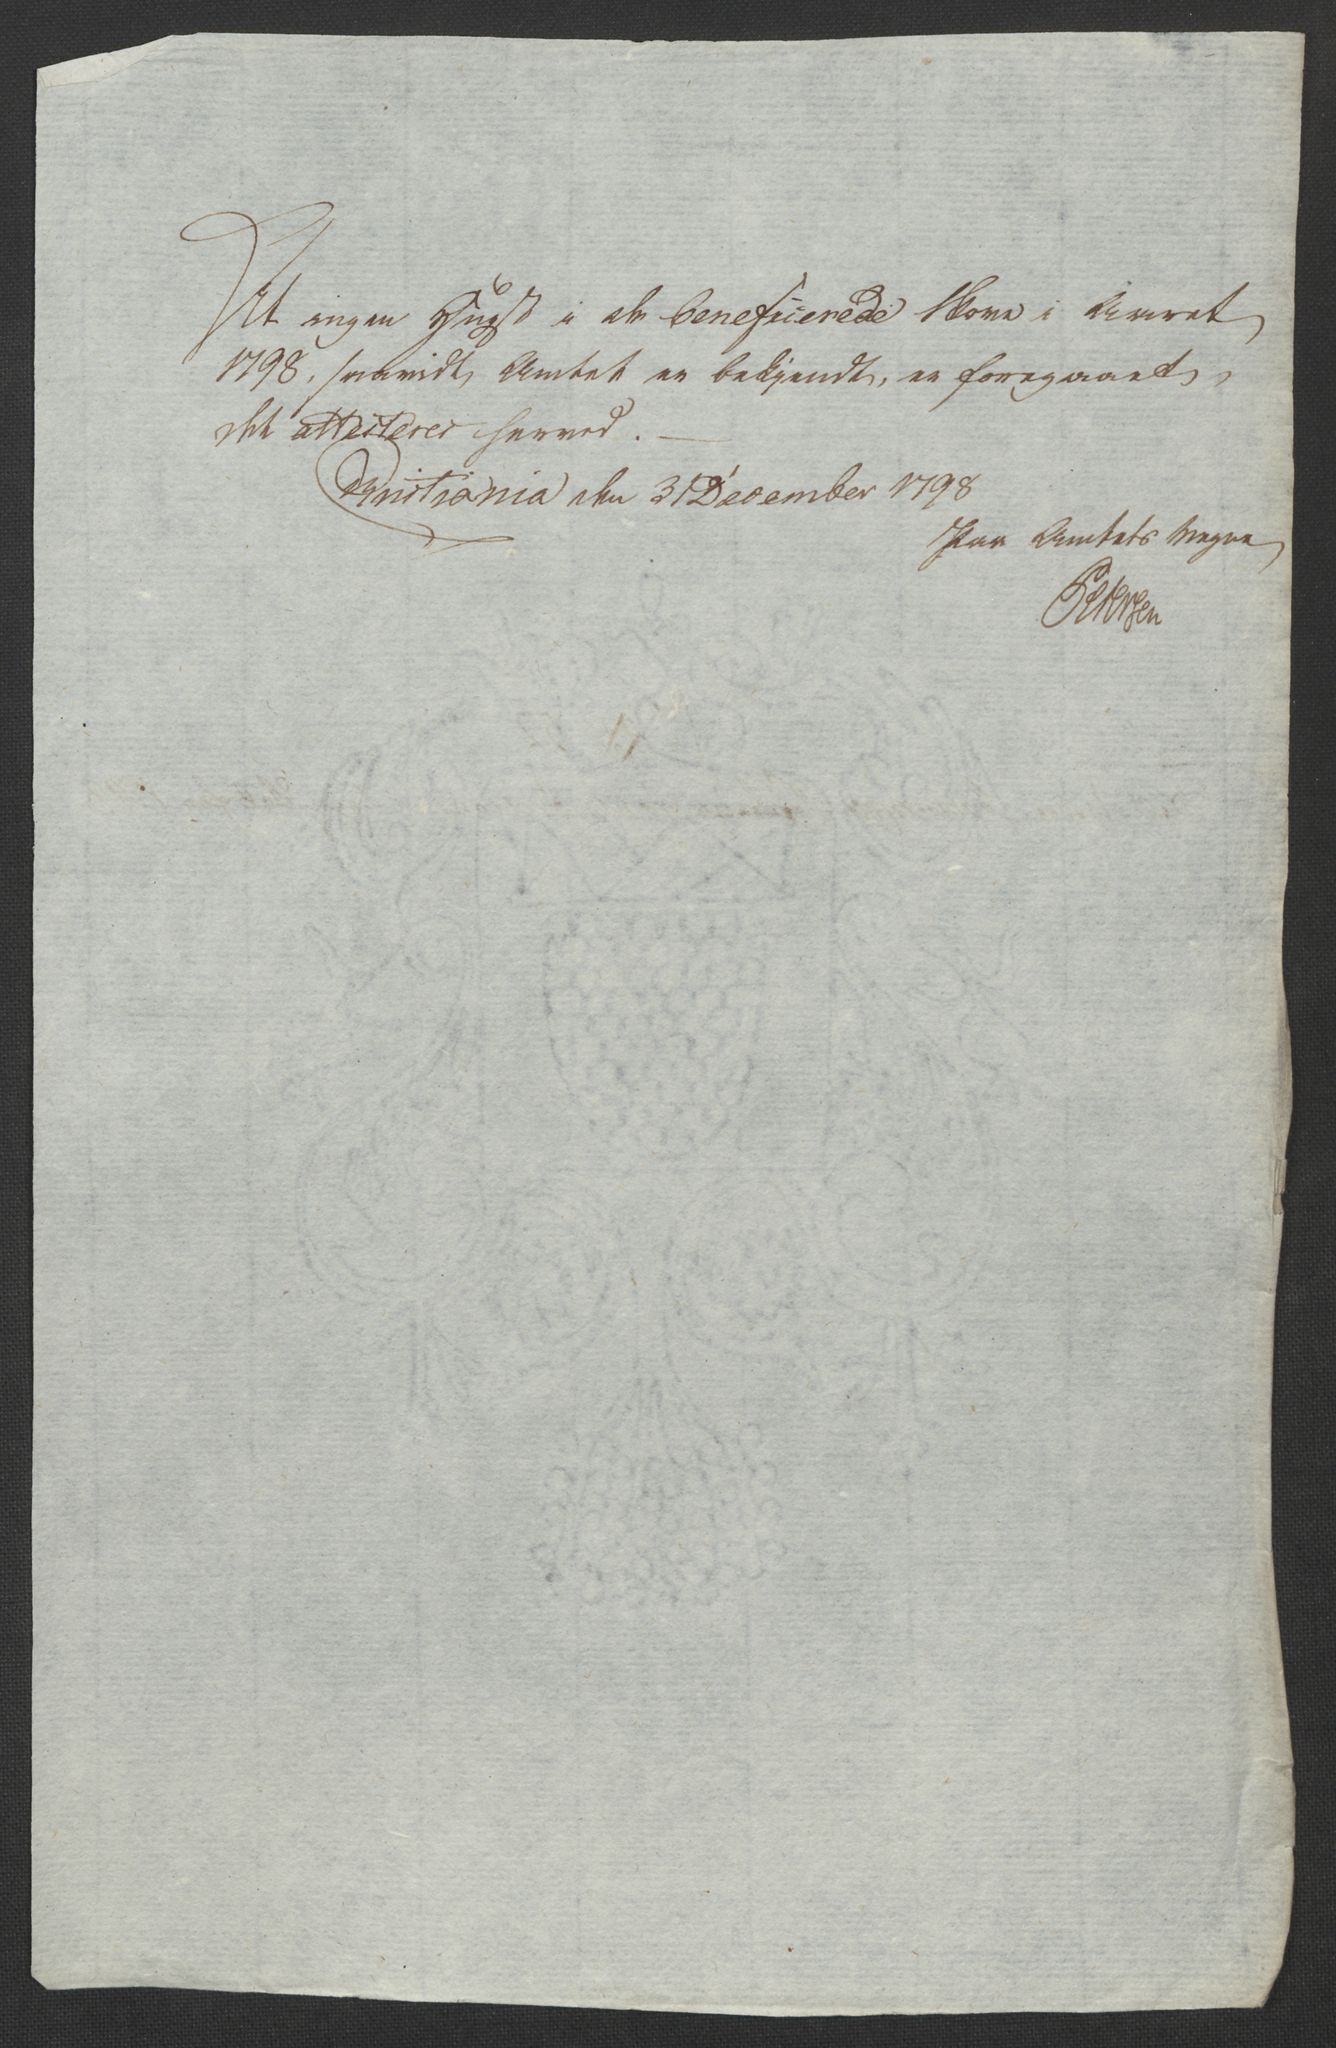 At ingen Hugst i de beneficerede Skove i Aaret
1798, saavidt Amtet er bekjendt, er foregaaet,
det attesteres herved. —
Christiania den 31 December 1798
Paa Amtets Vegne
Petersen